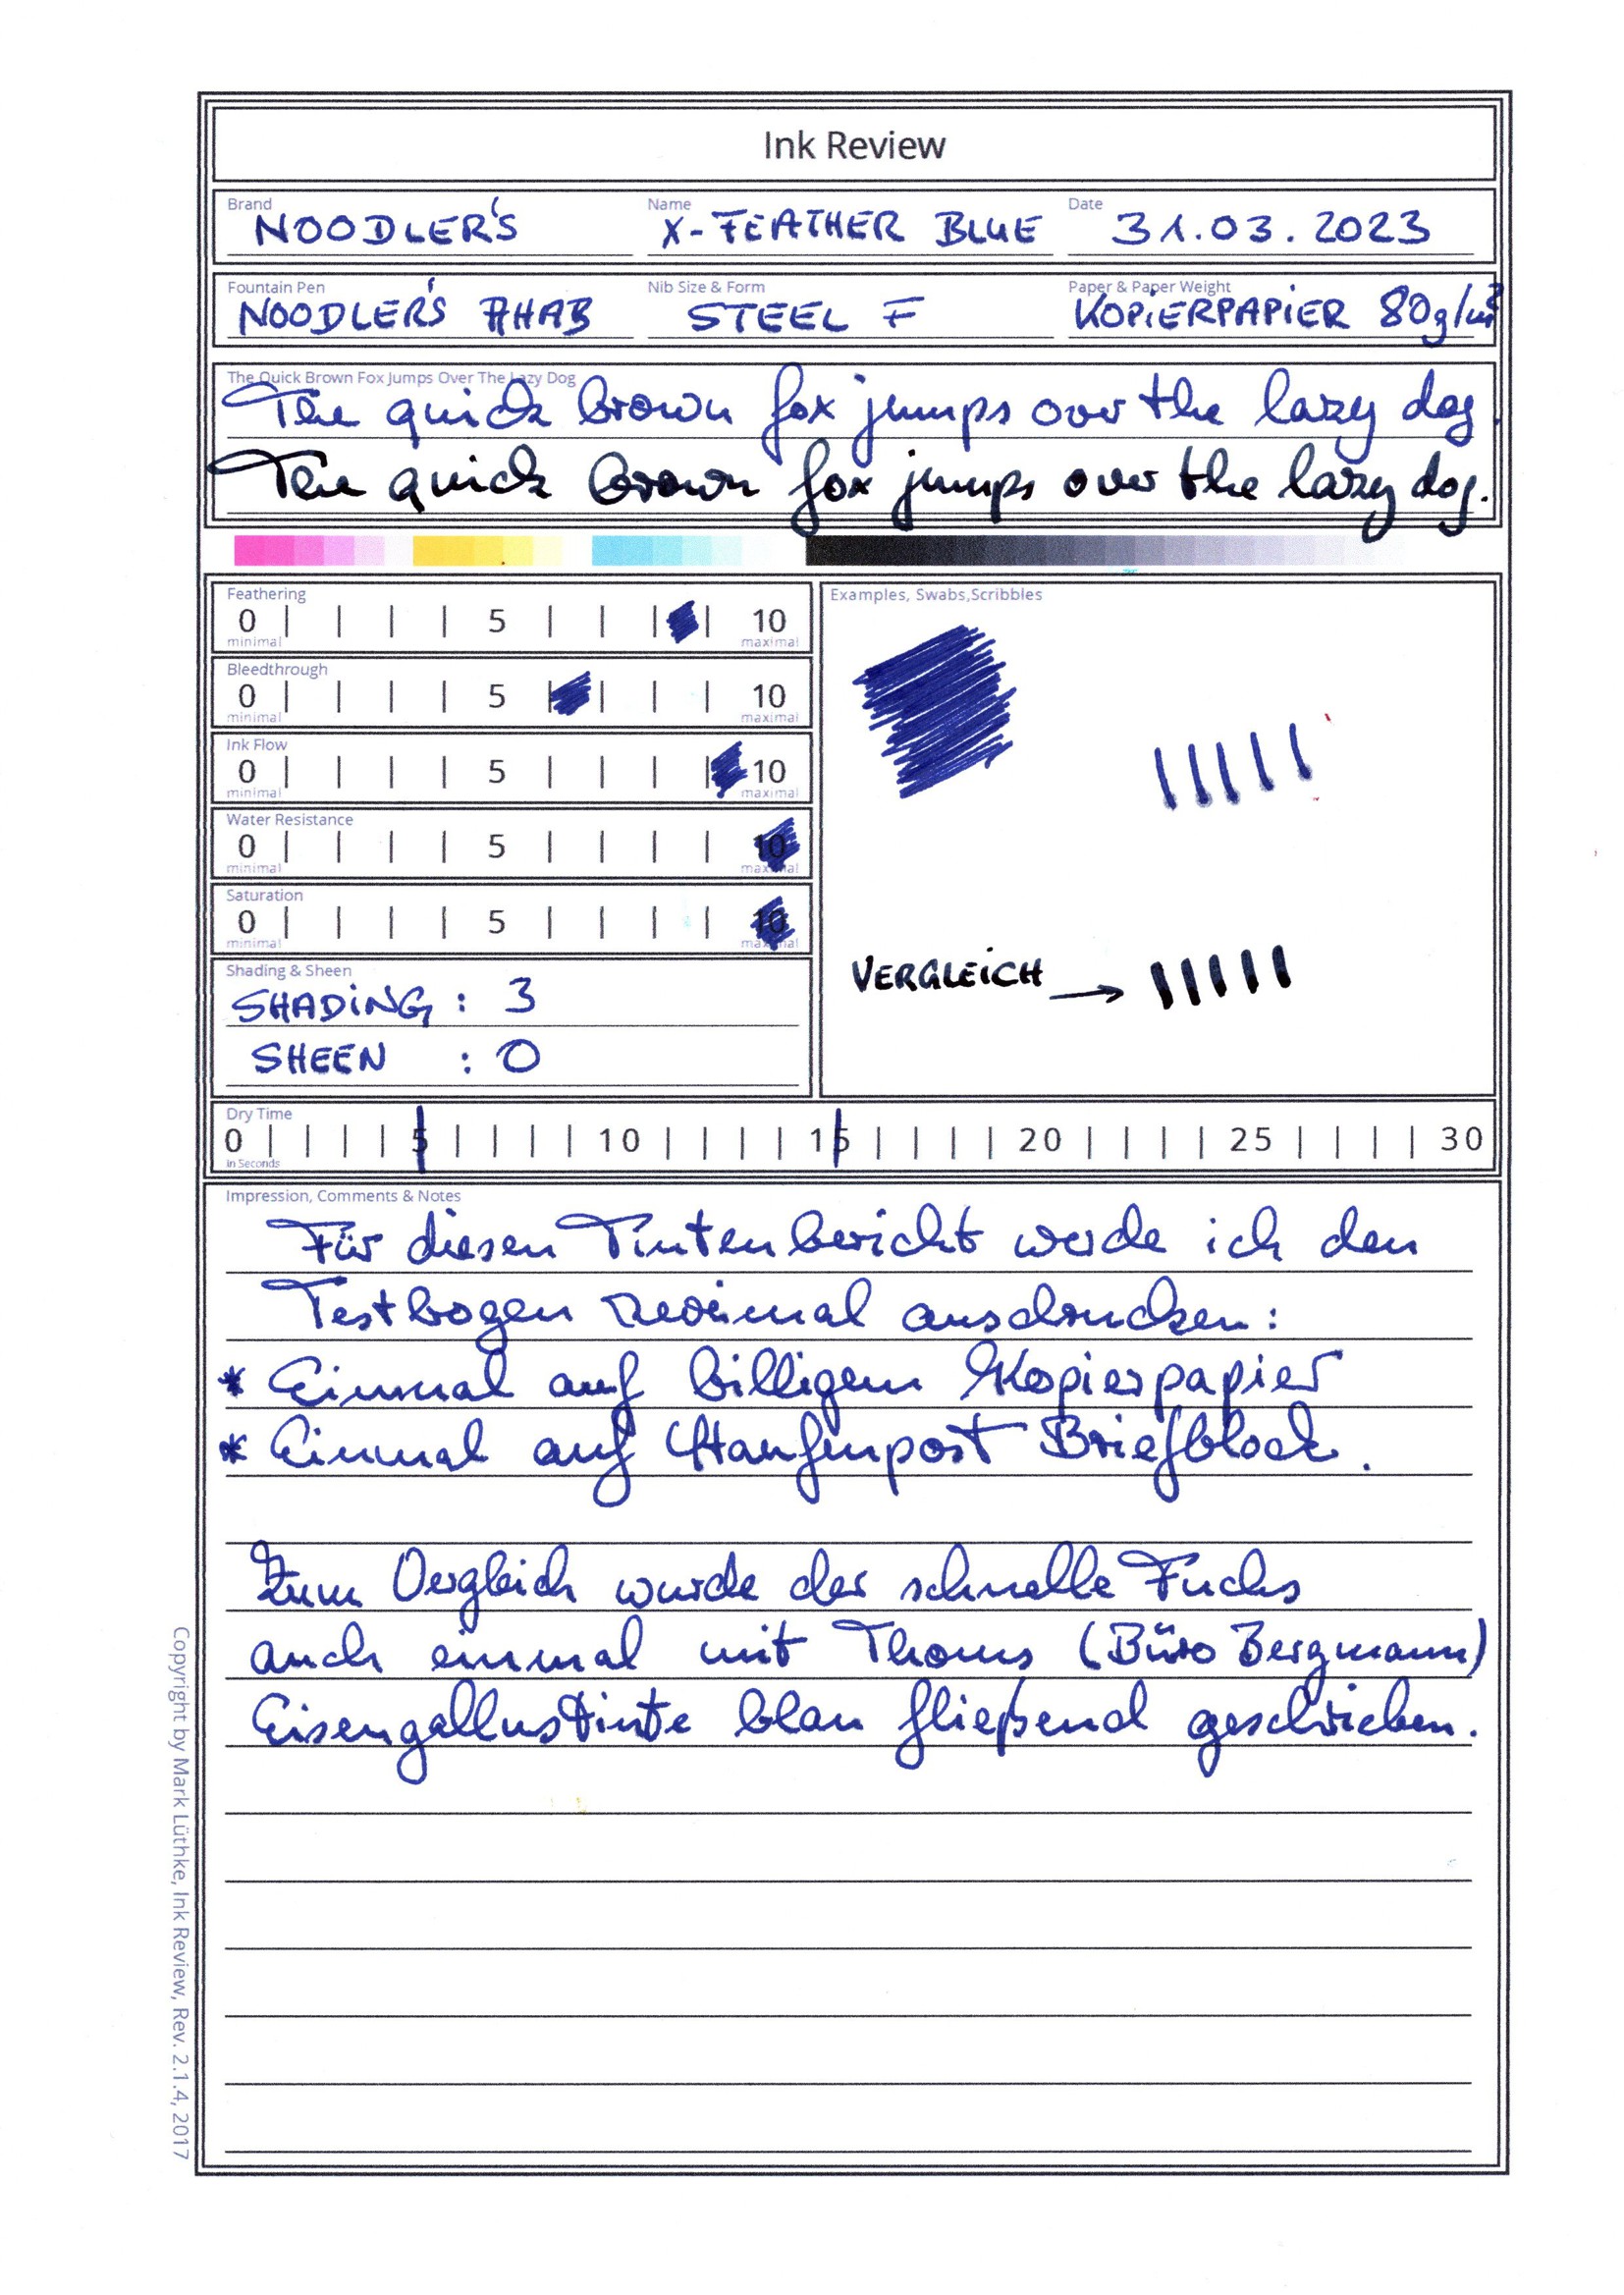 Ink Review
Brand Name Date
NOODLER'S X-FEATHER BLUE 31.03.2023
Fountain Pen Nib Size & Form Paper & Paper Weight
NOODLER'S AHAB STEEL F KOPiERPAPiER 80g/m²
The Quick Brown Fox Jumps Over The Lazy Dog
The quick brown fox jumps over the lazy dog.
The quick brown fox jumps over the lazy dog.
Feathering
0 | | | | 5 | | | | 10
minimal maximal
Bleedthrough
0 | | | | 5 | | | | 10
minimal maximal
Ink Flow
0 | | | | 5 | | | | 10
minimal maximal
Water Resistance
0 | | | | 5 | | | | 10
minimal maximal
Saturation
0 | | | | 5 | | | | 10
minimal maximal
Shading & Sheen
SHADiNG : 3
SHEEN : 0
Examples, Swabs,Scribbles
VERGLEiCH →
Dry Time
0 | | | | 5 | | | | 10 | | | | 15 | | | | 20 | | | | 25 | | | | 30
in Seconds
Impression, Comments & Notes
Für diesen Tintenbericht werde ich den
Testbogen zweimal ausdrucken:
* Einmal auf billigem Kopierpapier
* Einmal auf Hanfenpost Briefblock.
Zum Vergleich wurde der schnelle Fuchs
auch einmal mit Thoms (Büro Bergmann)
Eisengallustinte blau fließend geschrieben.
Copyright by Mark Lüthke, Ink Review, Rev. 2.1.4, 2017